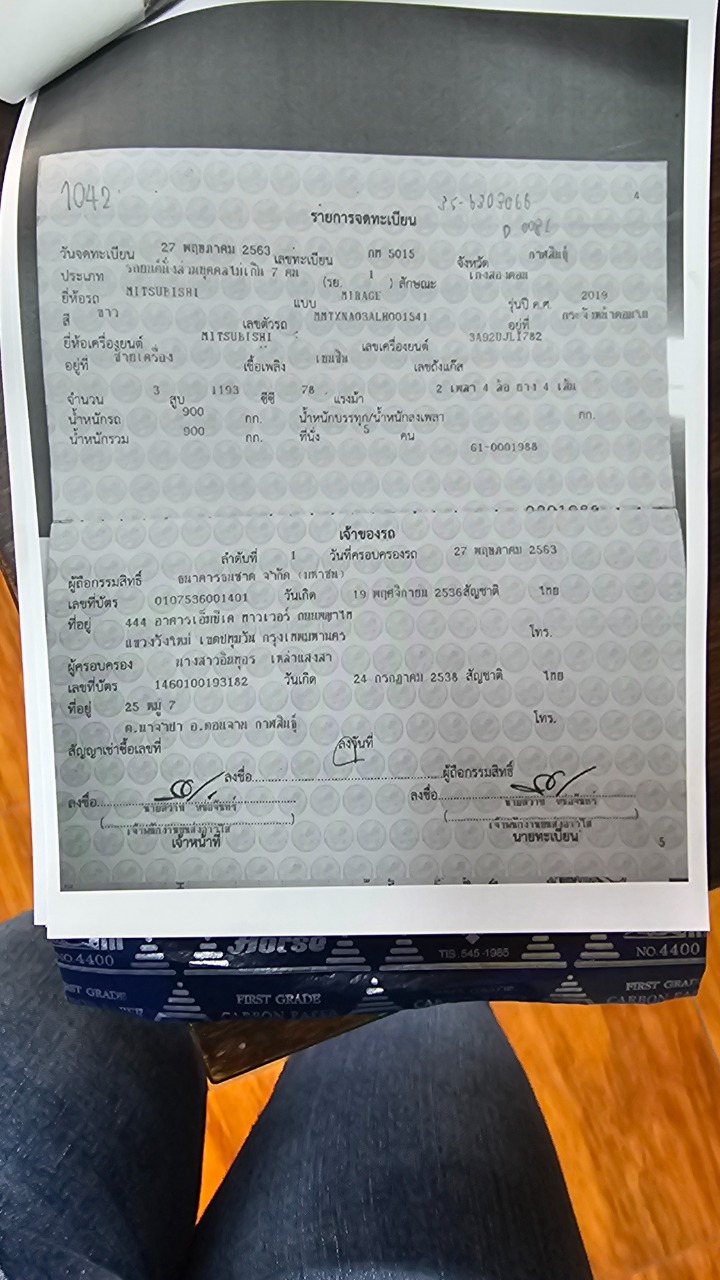 1042
35-6303066
4
รายการจดทะเบียน
D 0081
วันจดทะเบียน 27 พฤษภาคม 2563 เลขทะเบียน กท 5015 จังหวัด กาฬสินธุ์
ประเภท รถยนต์นั่งส่วนบุคคลไม่เกิน 7 คน (รย. 1 ) ลักษณะ เก๋งสองตอน
ยี่ห้อรถ MITSUBISHI แบบ MIRAGE รุ่นปี ค.ศ. 2019
สี ขาว เลขตัวรถ MMTXNA03ALH001541 อยู่ที่
ยี่ห้อเครื่องยนต์ MITSUBISHI เลขเครื่องยนต์ 3A92UJL1782
อยู่ที่ ซ้ายเครื่อง เชื้อเพลิง เบนซิน เลขถังแก๊ส
จำนวน 3 สูบ 1193 ซีซี 78 แรงม้า 2 เพลา 4 ล้อ ยาง 4 เส้น
น้ำหนักรถ 900 กก. น้ำหนักบรรทุก/น้ำหนักลงเพลา กก.
น้ำหนักรวม 900 กก. ที่นั่ง 5 คน
61-0001988
เจ้าของรถ
ลำดับที่ 1 วันที่ครอบครองรถ 27 พฤษภาคม 2563
ผู้ถือกรรมสิทธิ์ ธนาคารธนชาต จำกัด (มหาชน)
เลขที่บัตร 0107536001401 วันเกิด 19 พฤศจิกายน 2536 สัญชาติ ไทย
ที่อยู่ 444 อาคารเอ็มบีเค ทาวเวอร์ ถนนพญาไท
แขวงวังใหม่ เขตปทุมวัน กรุงเทพมหานคร โทร.
ผู้ครอบครอง นางสาวอินทุอร เหล่าแสงสา
เลขที่บัตร 1460100193182 วันเกิด 24 กรกฎาคม 2538 สัญชาติ ไทย
ที่อยู่ 25 หมู่ 7
ต.นาจำปา อ.ดอนจาน กาฬสินธุ์ โทร.
สัญญาเช่าซื้อเลขที่ ลงวันที่
ลงชื่อ ผู้ถือกรรมสิทธิ์
ลงชื่อ ลงชื่อ
เจ้าพนักงานขนส่งอาวุโส เจ้าพนักงานขนส่งอาวุโส
เจ้าหน้าที่ นายทะเบียน
5
Horse
NO.4400 TIS.545-1985 NO.4400
FIRST GRADE FIRST GRADE
CARBON PAPER